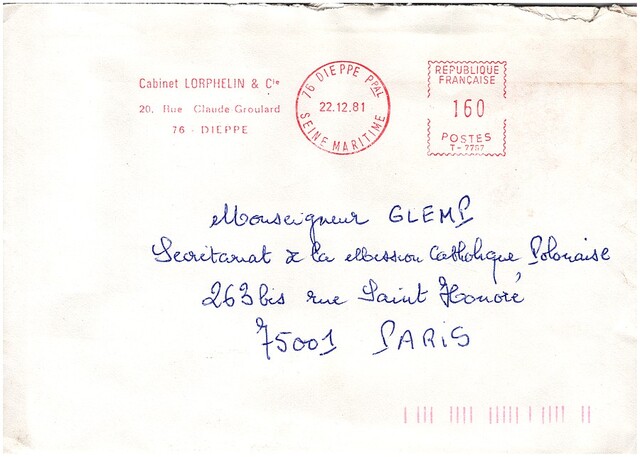 Cabinet LORPHELIN & Cie
20, Rue Claude Groulard
76 - DIEPPE
76 DIEPPE PPAL
22.12.81
SEINE MARITIME
REPUBLIQUE
FRANÇAISE
160
POSTES
T-7757
Monseigneur GLEMP
Secrétariat à la Mission Catholique Polonaise
263 bis rue Saint Honoré
75001 PARIS